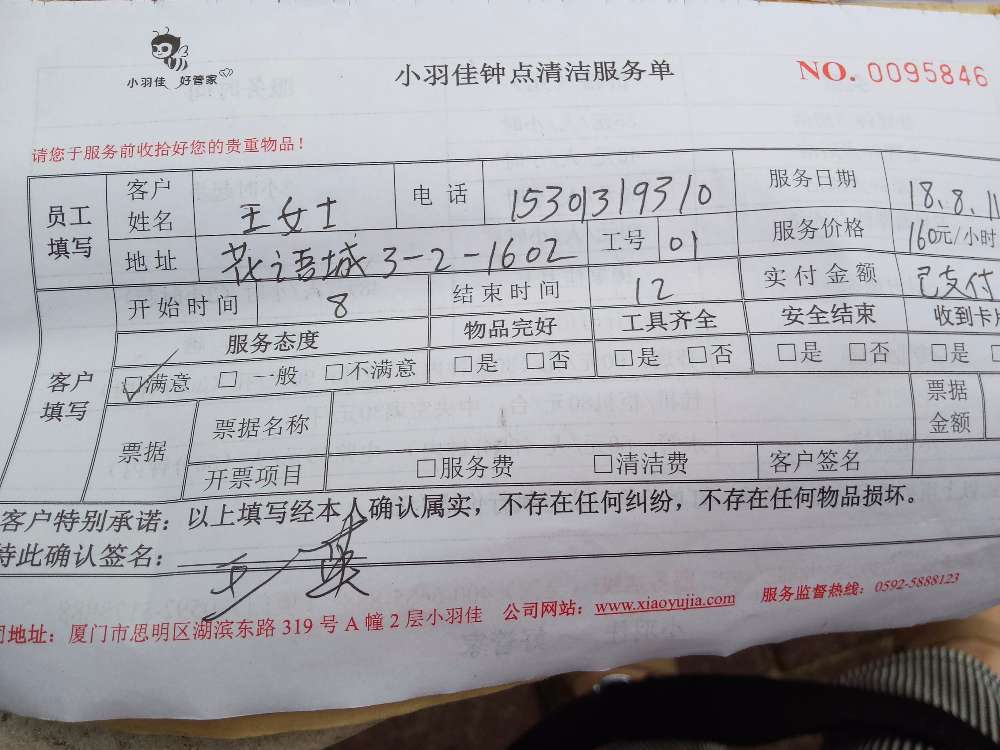 小羽佳 好管家
小羽佳钟点清洁服务单
NO. 0095846
请您于服务前收拾好您的贵重物品！
员工填写 客户姓名 王女士 电话 15301319310 服务日期 18.8.11
地址 花语城3-2-1602 工号 01 服务价格 160元/小时
客户填写 开始时间 8 结束时间 12 实付金额 已支付
服务态度 物品完好 工具齐全 安全结束 收到卡
☑满意 □一般 □不满意 □是 □否 □是 □否 □是 □否 □是
票据 票据名称 票据金额
开票项目 □服务费 □清洁费 客户签名
客户特别承诺：以上填写经本人确认属实，不存在任何纠纷，不存在任何物品损坏。
特此确认签名：
司地址：厦门市思明区湖滨东路 319 号 A 幢 2 层小羽佳 公司网站：www.xiaoyujia.com 服务监督热线：0592-5888123